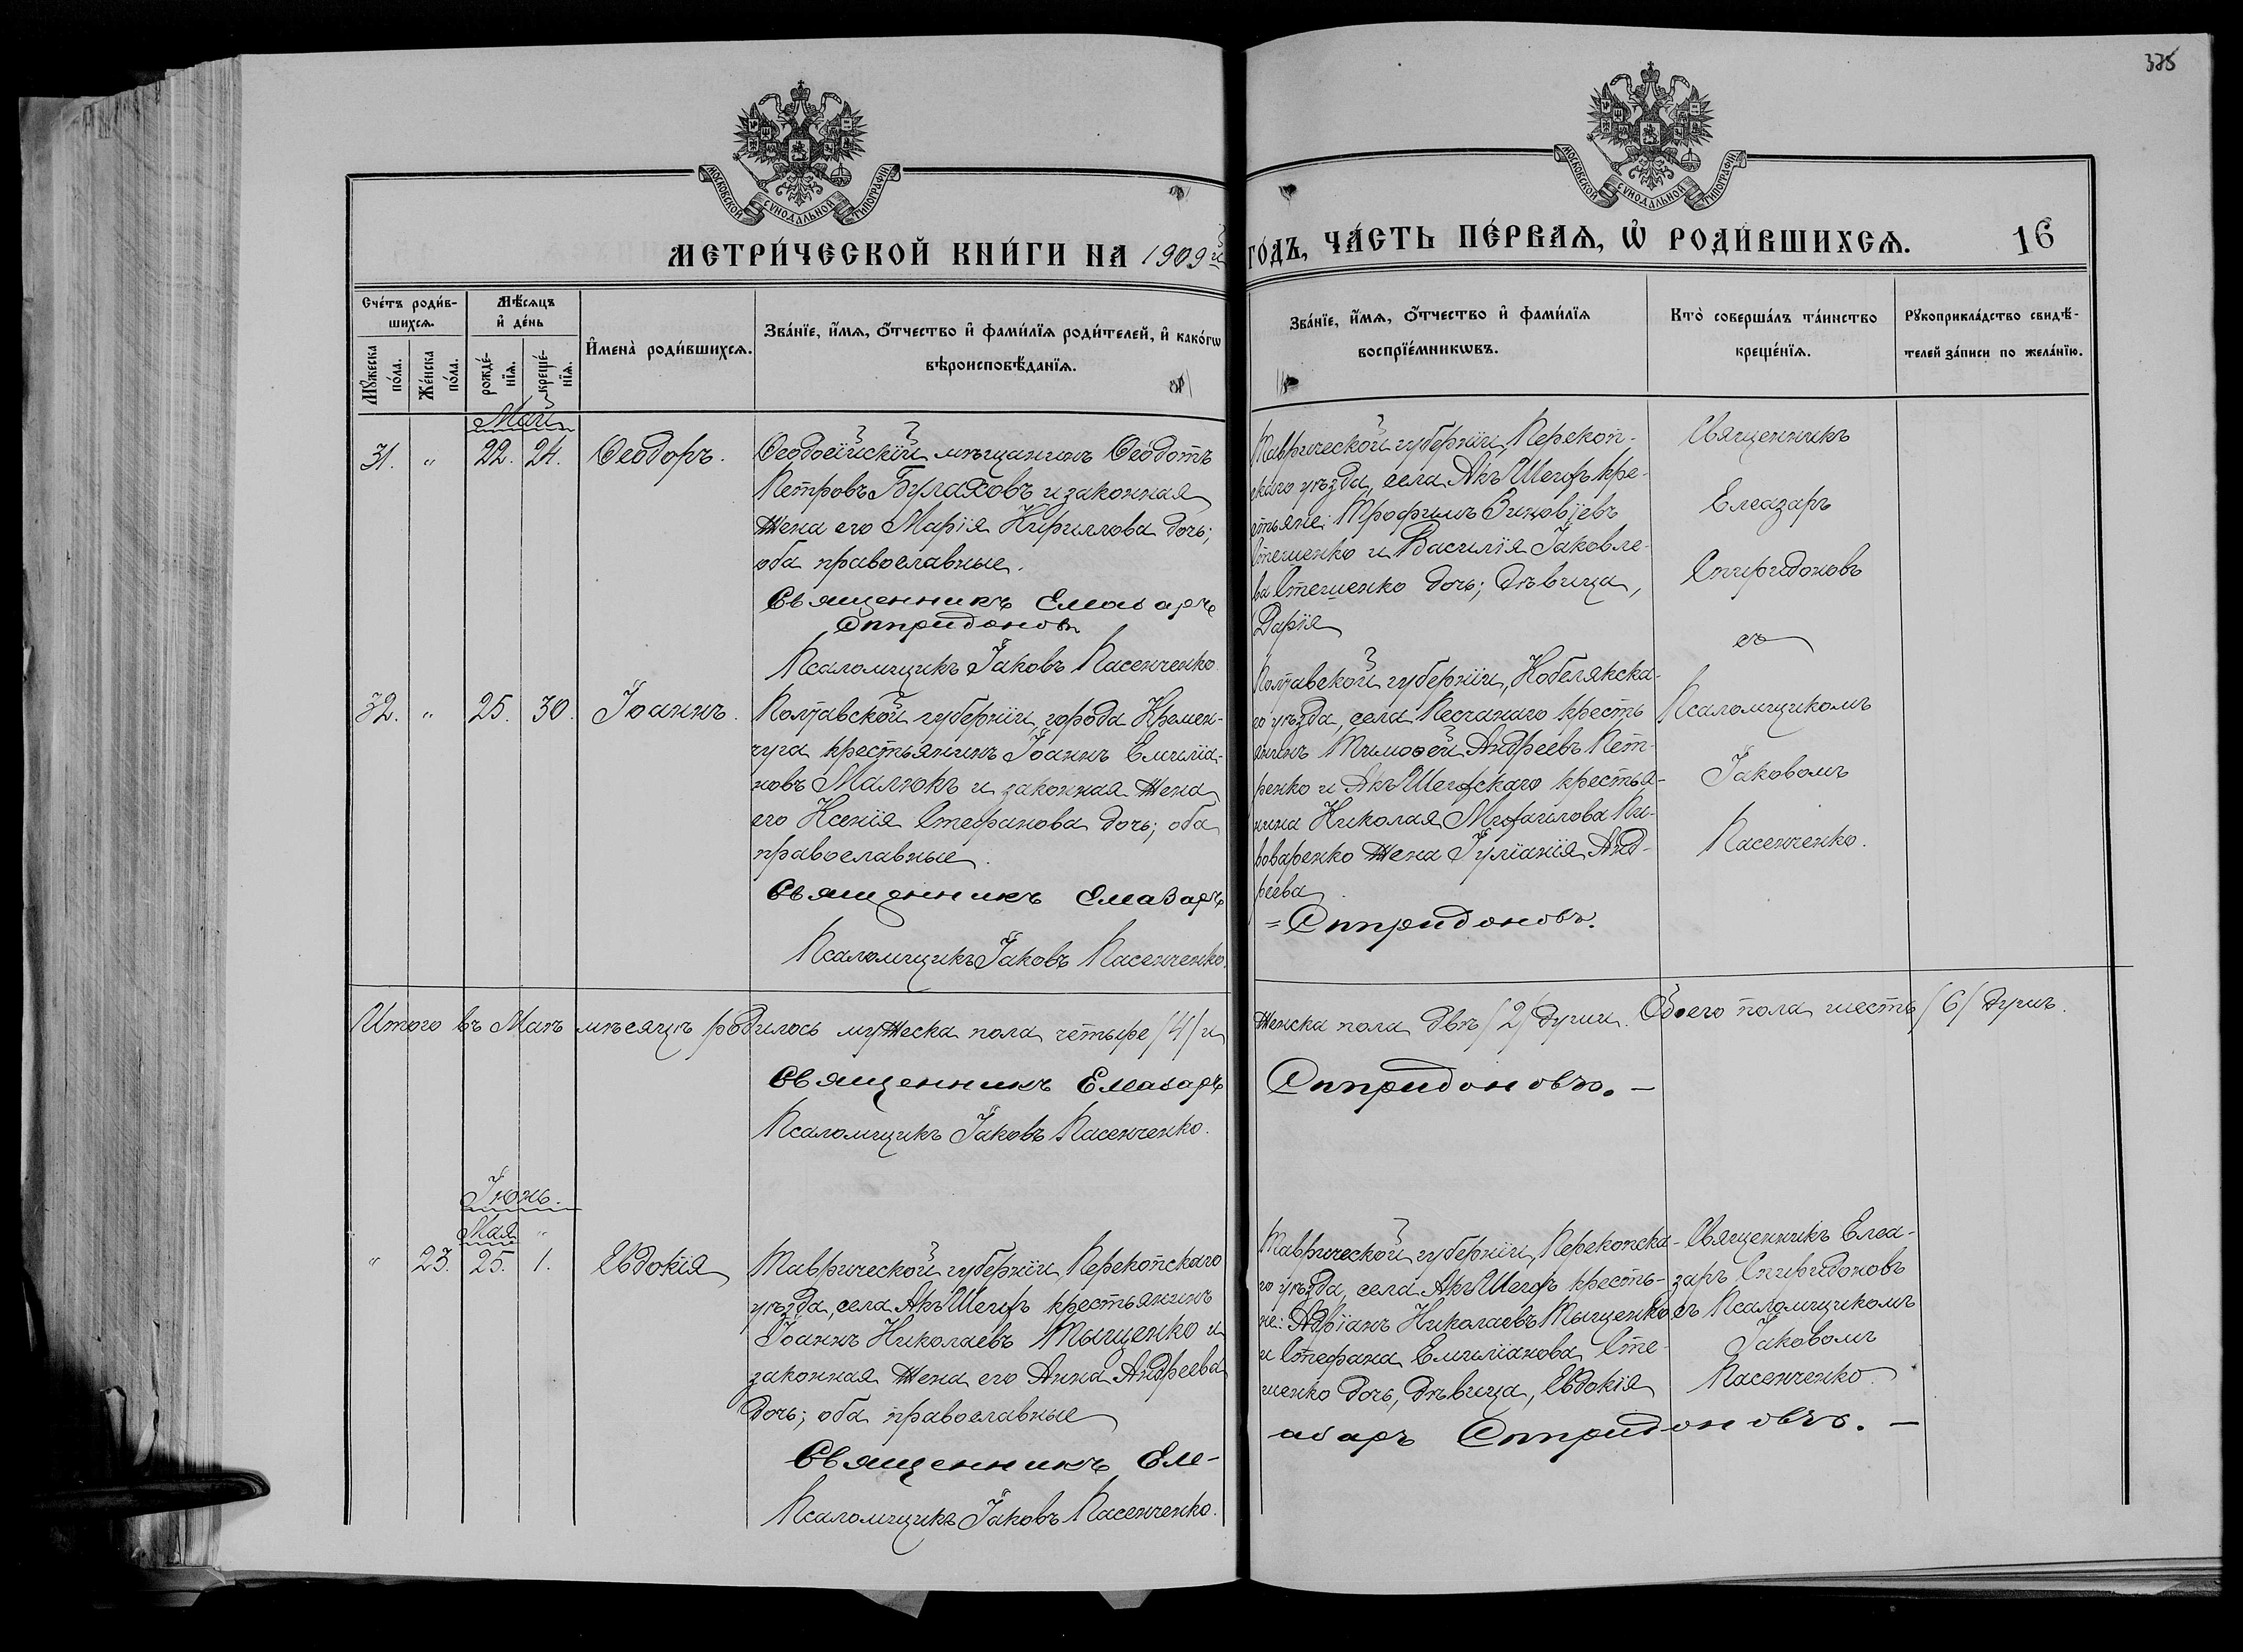 375
МОСКОВСКОЙ СѴНОДАЛЬНОЙ ТИПОГРАФІИ
МОСКОВСКОЙ СѴНОДАЛЬНОЙ ТИПОГРАФІИ
МЕТРИ́ЧЕСКОЙ КНИ́ГИ НА 1909й
ГО́ДЪ, ЧА́СТЬ ПЕ́РВАѦ, Ѡ҆ РОДИ́ВШИХСѦ.
16
Сче́тъ роди́в-
шихсѧ.
Мꙋ́жеска
по́ла.
Же́нска
по́ла.
Мѣ́сѧцъ
и҆ де́нь
рожде́-
нїѧ.
креще́-
нїѧ.
И҆мена̀ роди́вшихсѧ.
Зва́нїе, и҆́мѧ, о҆́тчество и҆ фами́лїѧ роди́телей, и҆ како́гѡ
вѣроисповѣ́данїѧ.
Зва́нїе, и҆́мѧ, о҆́тчество и҆ фами́лїѧ
воспрїе́мникѡвъ.
Кто̀ соверша́лъ та́инство
креще́нїѧ.
Рꙋкоприкла́дство свидѣ́-
телей за́писи по жела́нїю.
Май
31. „ 22. 24. Ѳеодоръ.
Ѳеодосійскій мѣщанинъ Ѳеодотъ
Петровъ Булаховъ и законная
жена его Марія Кириллова дочь;
оба православные.
Священникъ Елеазаръ
Спиридоновъ
Псаломщикъ Іаковъ Пасенченко.
Таврической губерніи, Перекоп-
скаго уѣзда, села Акъ Шехъ кре-
стьяне: Трофимъ Зиновіевъ
Стешенко и Василія Іаковле-
ва Стешенко дочь; дѣвица,
Дарія
Священникъ
Елеазаръ
Спиридоновъ
съ
Псаломщикомъ
Іаковомъ
Пасенченко.
32. „ 25. 30. Іоаннъ.
Полтавской губерніи, города Кремен-
чуга крестьянинъ Іоаннъ Емиліа-
новъ Малюкъ и законная жена
его Ксенія Стефанова дочь; оба
православные.
Священникъ Елеазаръ
Псаломщикъ Іаковъ Пасенченко.
Полтавской губерніи, Кобелякска-
го уѣзда, села Песчанаго кресть
янинъ Тимоѳей Андреевъ Пет-
ренко и Акъ Шехскаго крестья-
нина Николая Михаилова Пи-
воваренко жена Іуліанія Анд-
реева.
=Спиридоновъ.
Итого въ Маѣ мѣсяцѣ родилось мужеска пола четыре /4/ и
женска пола двѣ /2/ души. Обоего пола шесть /6/ душъ.
Священникъ Елеазаръ
Спиридоновъ. —
Псаломщикъ Іаковъ Пасенченко.
Іюнь.
Мая „
„ 23. 25. 1. Евдокія
Таврической губерніи, Перекопскаго
уѣзда, села Акъ Шехъ крестьянинъ
Іоаннъ Николаевъ Тыщенко и
законная жена его Анна Андреева
дочь; оба православные
Священникъ Еле-
Псаломщикъ Іаковъ Пасенченко.
Таврической губерніи, Перекопска-
го уѣзда, села Акъ Шехъ кресть-
не: Адріанъ Николаевъ Тыщенко
и Стефана Емиліанова Сте-
шенко дочь, дѣвица, Евдокія
азаръ Спиридоновъ. —
Священникъ Елеа-
заръ Спиридоновъ
съ Псаломщикомъ
Іаковомъ
Пасенченко.